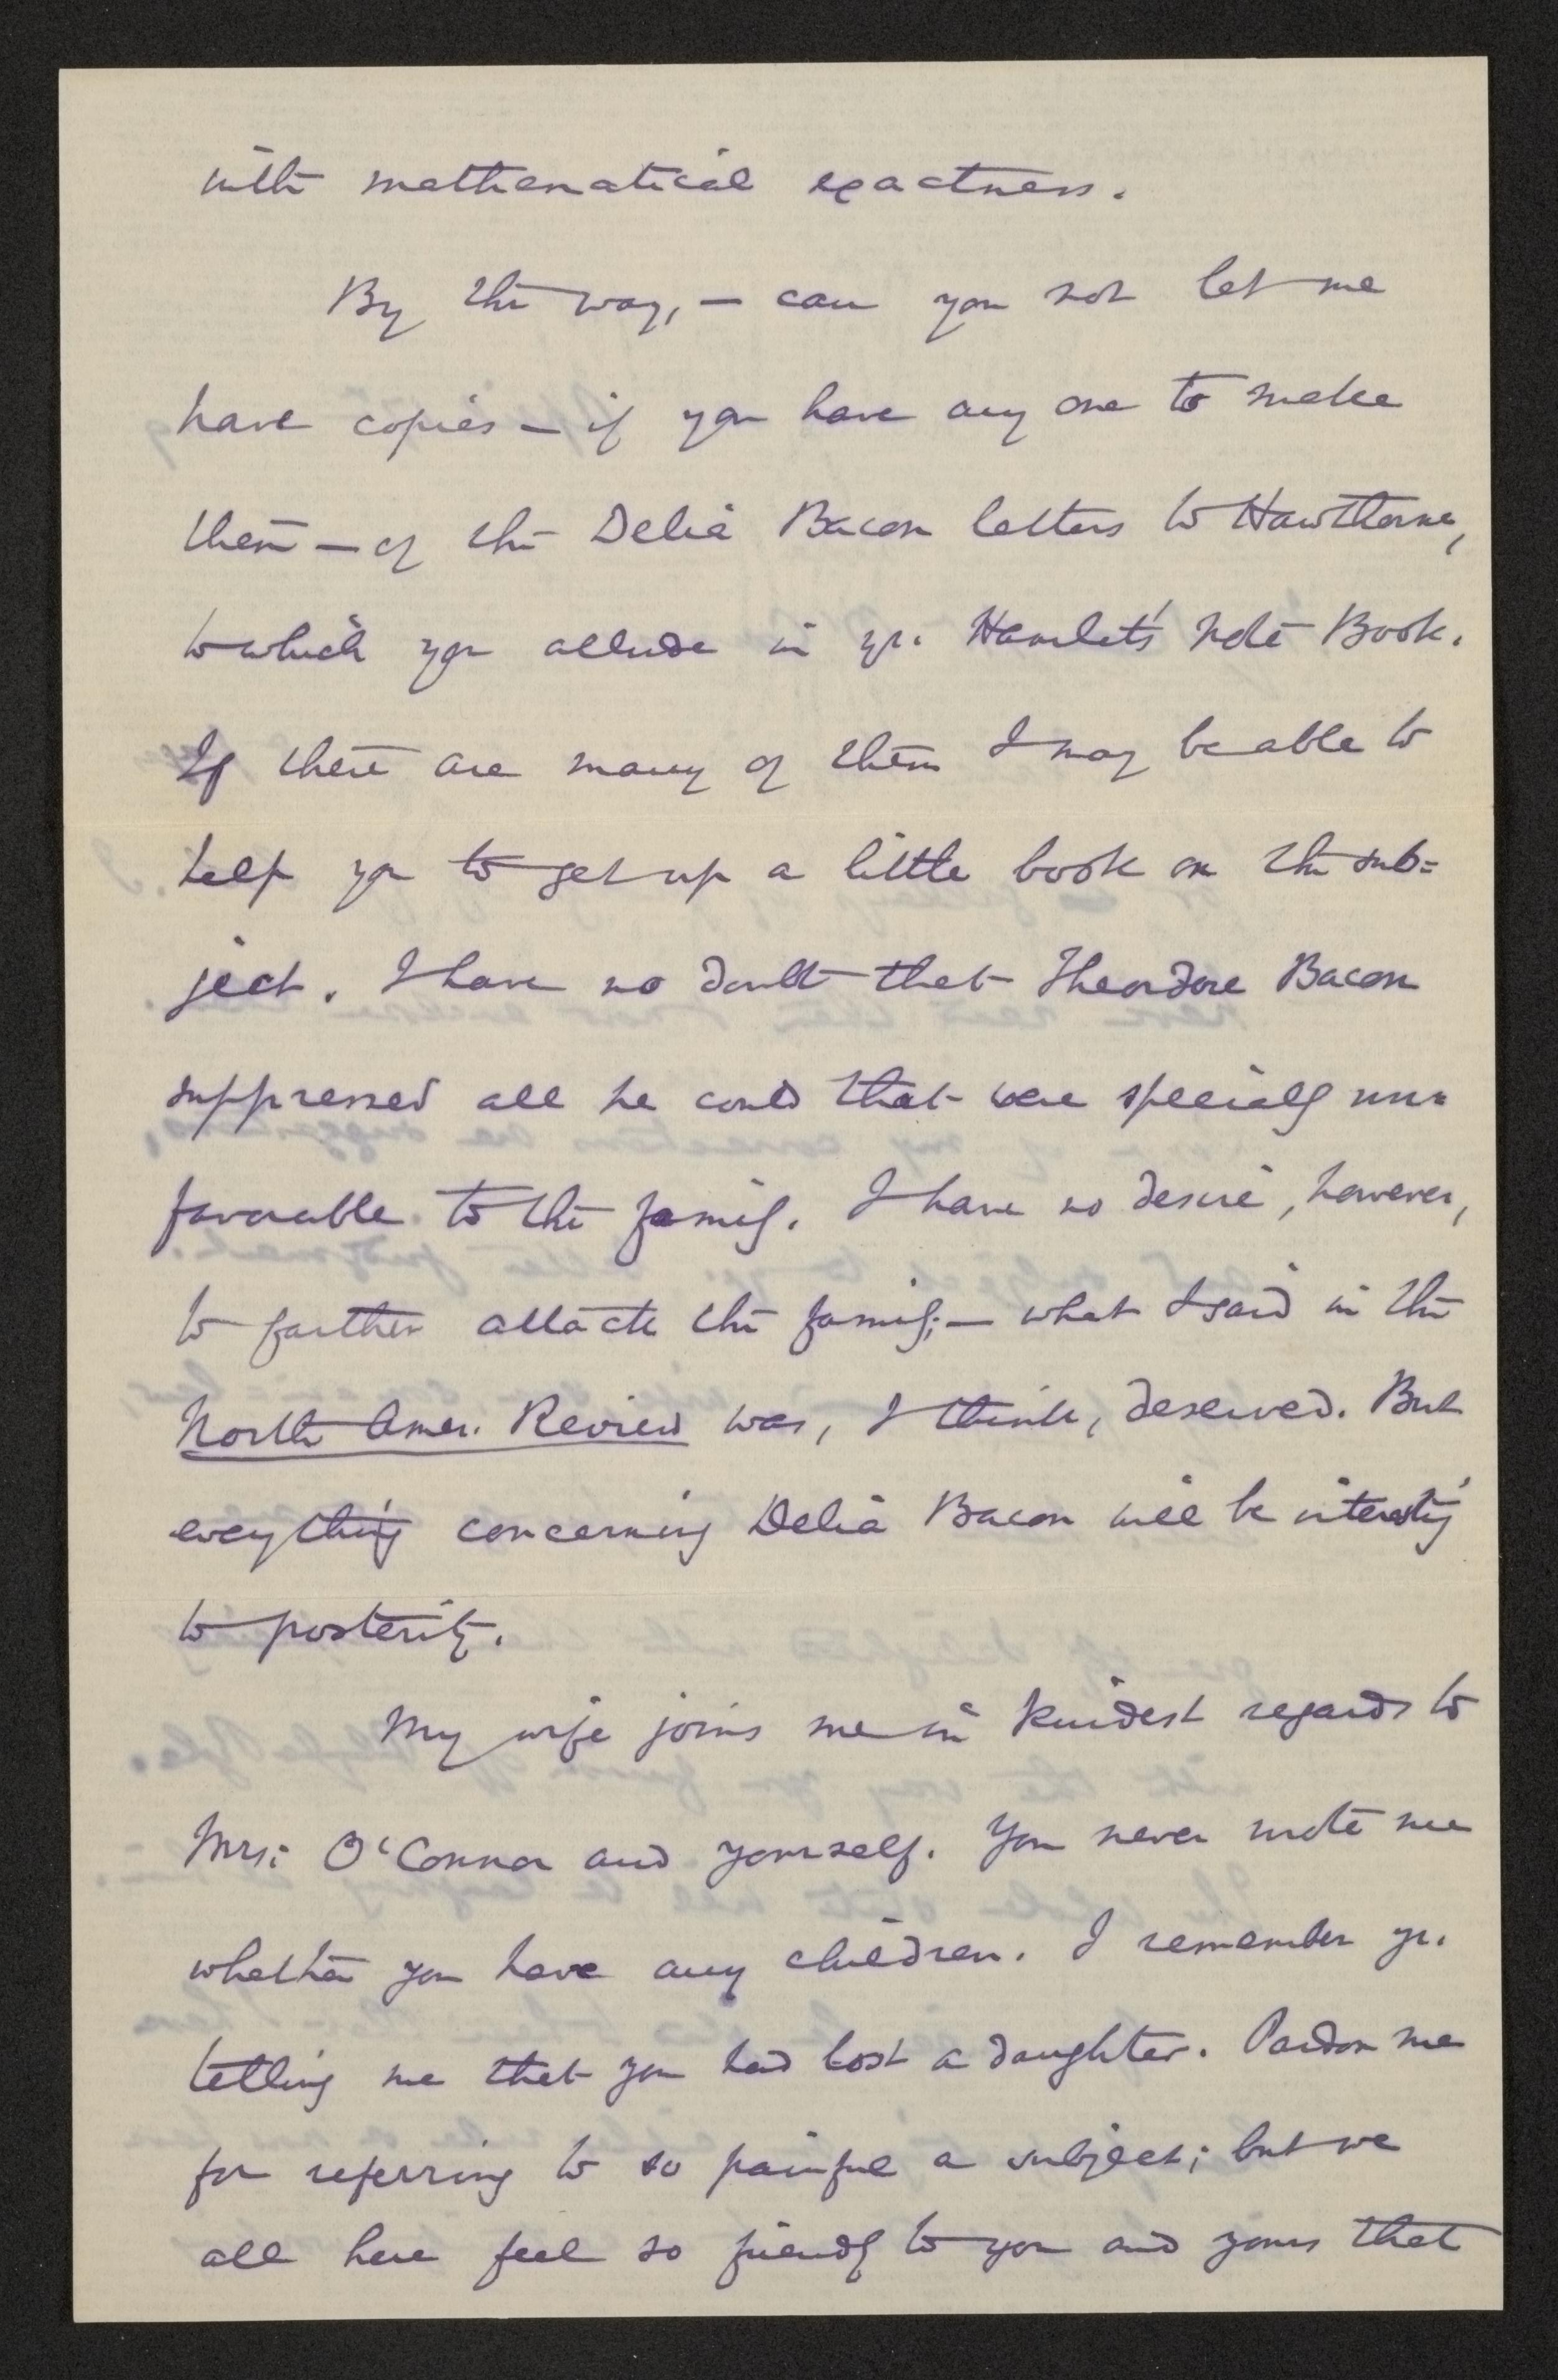 with mathematical exactness.
By the way, — can you not let me
have copies — if you have any one to make
them — of the Delia Bacon letters to Hawthorne,
to which you allude in yr. Hamlet's Note Book.
If there are many of them I may be able to
help you to get up a little book on the sub=
ject. I have no doubt that Theodore Bacon
suppressed all he could that were specially un=
favorable to the family. I have no desire, however,
to farther attack the family; — what I said in the
North Amer. Review was, I think, deserved. But
everything concerning Delia Bacon will be interesting
to posterity.
My wife joins me in kindest regards to
Mrs: O'Connor and yourself. You never wrote me
whether you have any children. I remember yr.
telling me that you had lost a daughter. Pardon me
for referring to so painful a subject; but we
all here feel so friendly to you and yours that